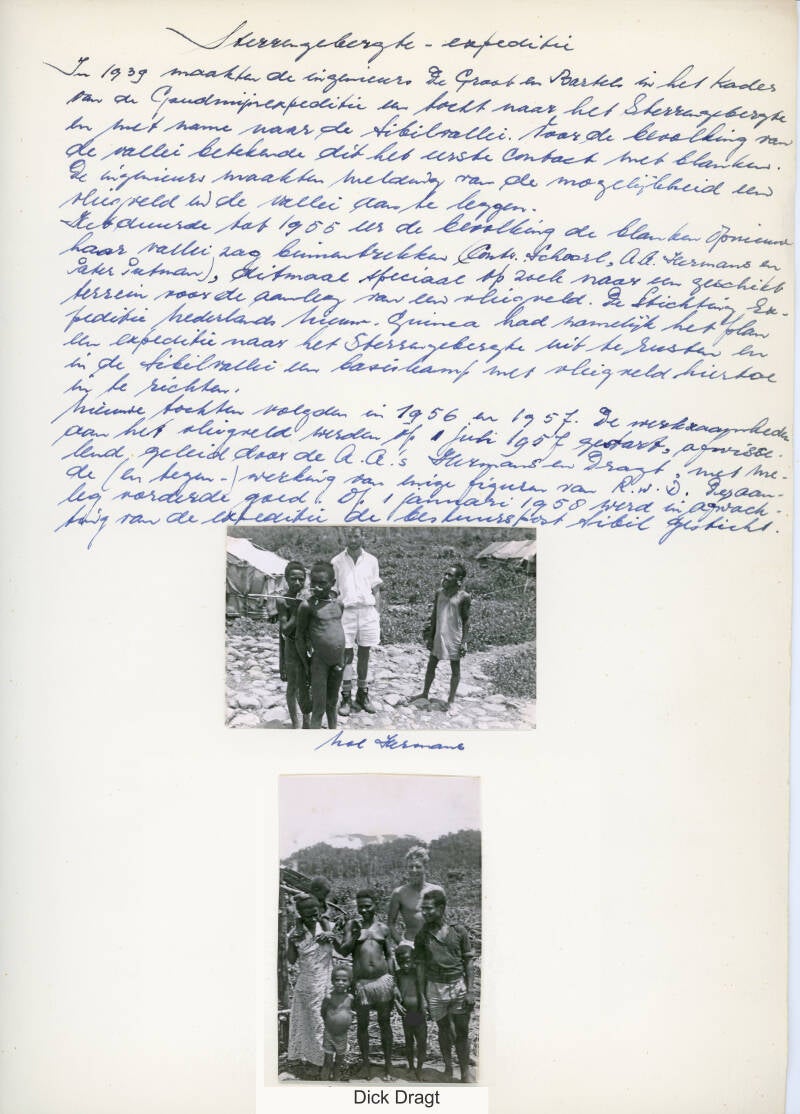 Sterrengebergte - expeditie
In 1939 maakten de ingenieurs De Groot en Bartels in het kader
van de Goudmijnexpeditie een tocht naar het Sterrengebergte
en met name naar de Sibilvallei. Voor de bevolking van
de vallei betekende dit het eerste contact met blanken.
De ingenieurs maakten melding van de mogelijkheid een
vliegveld in de vallei aan te leggen.
Het duurde tot 1955 eer de bevolking de blanken opnieuw
haar vallei zag binnentrekken (Contr. Schoorl, A.A. Hermans en
Pater Putman), ditmaal speciaal op zoek naar een geschikt
terrein voor de aanleg van een vliegveld. De Stichting Ex-
peditie Nederlands Nieuw-Guinea had namelijk het plan
een expeditie naar het Sterrengebergte uit te rusten en
in de Sibilvallei een basiskamp met vliegveld hiertoe
in te richten.
Nieuwe tochten volgden in 1956 en 1957. De werkzaamheden
aan het vliegveld werden op 1 juli 1957 gestart, afwisse-
lend geleid door de A.A.'s Hermans en Dragt, met me-
de (en tegen-) werking van enige figuren van R.W.D. De aan-
leg vorderde goed. Op 1 januari 1958 werd in afwach-
ting van de expeditie de bestuurspost Sibil gesticht.
Nol Hermans
Dick Dragt